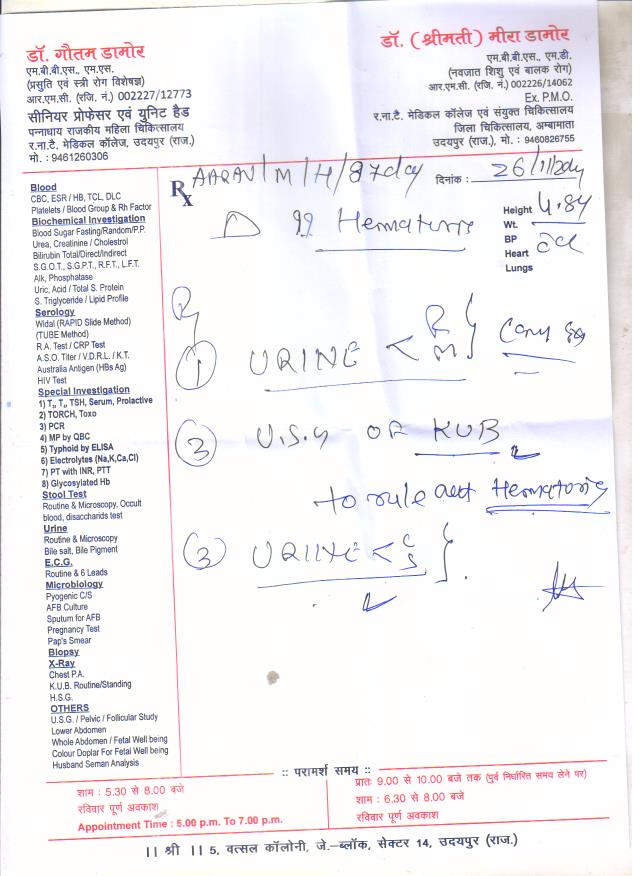 डॉ. गौतम डामोर
एम.बी.बी.एस., एम.एस.
(प्रसुति एवं स्त्री रोग विशेषज्ञ)
आर.एम.सी. (रजि. नं.) 002227/12773
सीनियर प्रोफेसर एवं युनिट हैड
पन्नाधाय राजकीय महिला चिकित्सालय
र.ना.टै. मेडिकल कॉलेज, उदयपुर (राज.)
मो. : 9461260306
डॉ. (श्रीमती) मीरा डामोर
एम.बी.बी.एस., एम.डी.
(नवजात शिशु एवं बालक रोग)
आर.एम.सी. (रजि. नं.) 002226/14062
Ex. P.M.O.
र.ना.टै. मेडिकल कॉलेज एवं संयुक्त चिकित्सालय
जिला चिकित्सालय, अम्बामाता
उदयपुर (राज.), मो. : 9460826755
Rx AARAV/M/H/87day
दिनांक : 26/11/2014
Height
Wt. 4.84
BP
Heart
Lungs
Hematuria
Blood
CBC, ESR / HB, TCL, DLC
Platelets / Blood Group & Rh Factor
Biochemical Investigation
Blood Sugar Fasting/Random/P.P.
Urea, Creatinine / Cholestrol
Bilirubin Total/Direct/Indirect
S.G.O.T., S.G.P.T., R.F.T., L.F.T.
Alk, Phosphatase
Uric, Acid / Total S. Protein
S. Triglyceride / Lipid Profile
Serology
Widal (RAPID Slide Method)
(TUBE Method)
R.A. Test / CRP Test
A.S.O. Titer / V.D.R.L. / K.T.
Australia Antigen (HBs Ag)
HIV Test
Special Investigation
1) T3, T4, TSH, Serum, Prolactive
2) TORCH, Toxo
3) PCR
4) MP by QBC
5) Typhoid by ELISA
6) Electrolytes (Na,K,Ca,Cl)
7) PT with INR, PTT
8) Glycosylated Hb
Stool Test
Routine & Microscopy, Occult
blood, disaccharids test
Urine
Routine & Microscopy
Bile salt, Bile Pigment
E.C.G.
Routine & 6 Leads
Microbiology
Pyogenic C/S
AFB Culture
Sputum for AFB
Pregnancy Test
Pap's Smear
Biopsy
X-Ray
Chest P.A.
K.U.B. Routine/Standing
H.S.G.
OTHERS
U.S.G. / Pelvic / Follicular Study
Lower Abdomen
Whole Abdomen / Fetal Well being
Colour Doplar For Fetal Well being
Husband Seman Analysis
Rx
1 URINE < R M
2 U.S.G OF KUB
to rule out Hematuria
3 URINE < C S
:: परामर्श समय ::
शाम : 5.30 से 8.00 बजे
रविवार पूर्ण अवकाश
Appointment Time : 5.00 p.m. To 7.00 p.m.
प्रातः 9.00 से 10.00 बजे तक (पुर्व निर्धारित समय लेने पर)
शाम : 6.30 से 8.00 बजे
रविवार पूर्ण अवकाश
|| श्री || 5, वत्सल कॉलोनी, जे.–ब्लॉक, सेक्टर 14, उदयपुर (राज.)